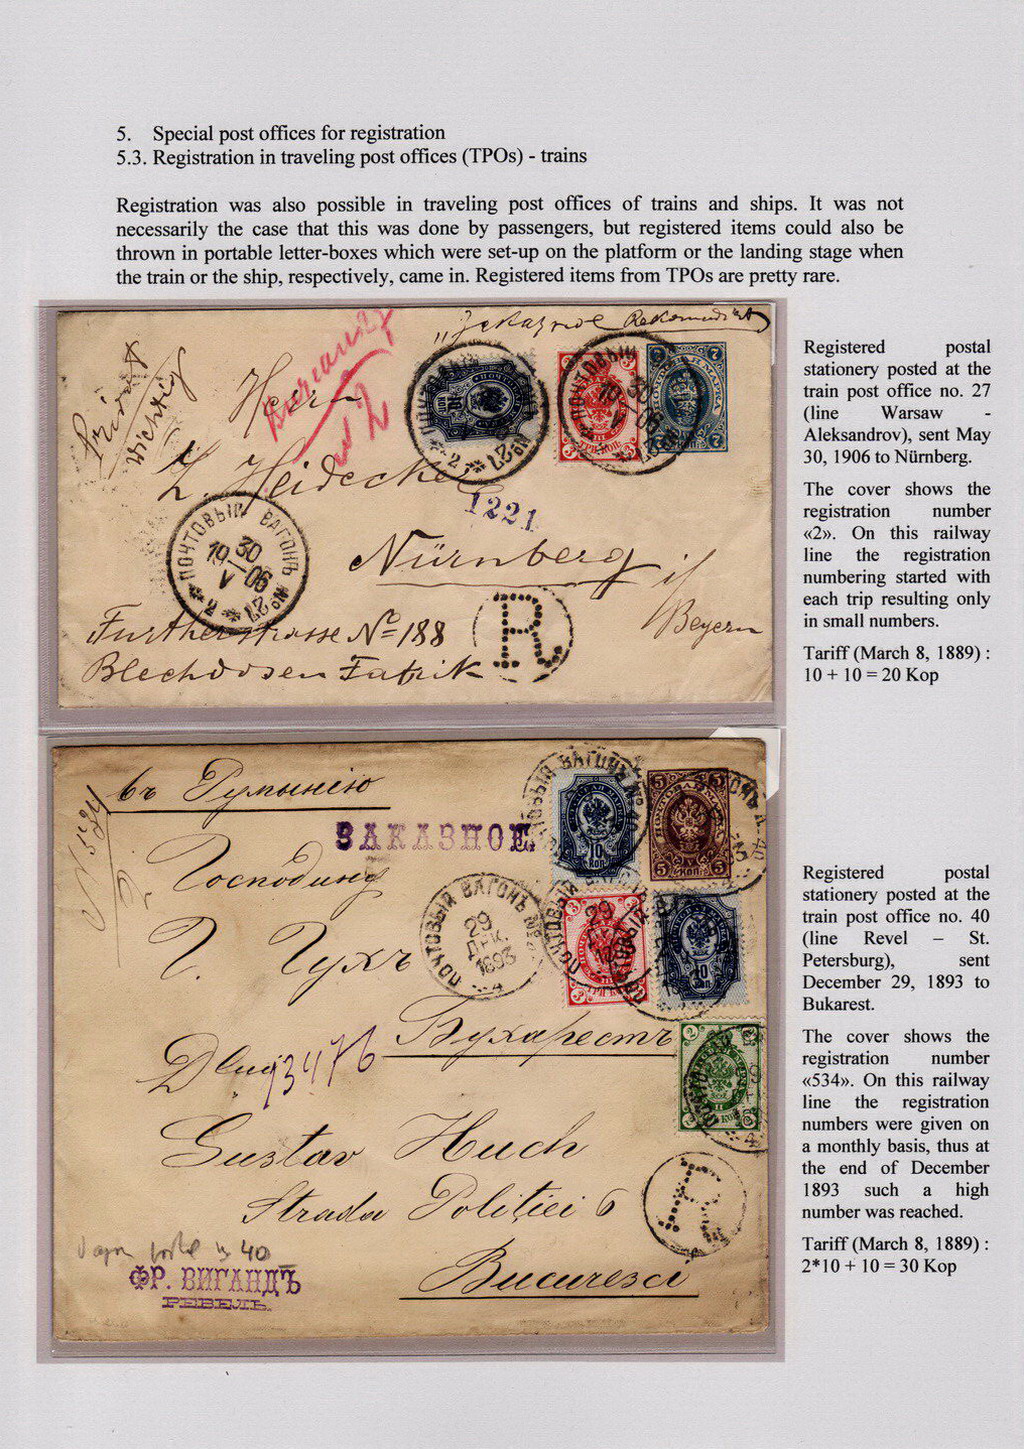 5. Special post offices for registration
5.3. Registration in traveling post offices (TPOs) - trains
Registration was also possible in traveling post offices of trains and ships. It was not
necessarily the case that this was done by passengers, but registered items could also be
thrown in portable letter-boxes which were set-up on the platform or the landing stage when
the train or the ship, respectively, came in. Registered items from TPOs are pretty rare.
Registered postal
stationery posted at the
train post office no. 27
(line Warsaw -
Aleksandrov), sent May
30, 1906 to Nürnberg.
The cover shows the
registration number
«2». On this railway
line the registration
numbering started with
each trip resulting only
in small numbers.
Tariff (March 8, 1889) :
10 + 10 = 20 Kop
„Заказное Rekomandirt
Privat
Wichtig
Herrn
L. Heidecke
1221
Nürnberg
i/
Beyern
Further strasse № 188
Blechdosen Fabrik
R
ПОЧТОВЫЙ ВАГОНЪ
30
19 06
V
№ 27
2
7 7
3 3
10
Registered postal
stationery posted at the
train post office no. 40
(line Revel – St.
Petersburg), sent
December 29, 1893 to
Bukarest.
The cover shows the
registration number
«534». On this railway
line the registration
numbers were given on
a monthly basis, thus at
the end of December
1893 such a high
number was reached.
Tariff (March 8, 1889) :
2*10 + 10 = 30 Kop
въ Румынiю
ЗАКАЗНОЕ
№ 534
Господину
Г. Гухъ
Бухарестъ
13476
Gustav Huch
Strada Politiei 6
Bucuresci
R
ПОЧТОВЫЙ ВАГОНЪ №
29
ДЕК.
1893
4
10 КОП.
5 5
5 КОП. 5
3 3
10 КОП.
2 2
40
ФР. ВИГАНДЪ
РЕВЕЛЬ.